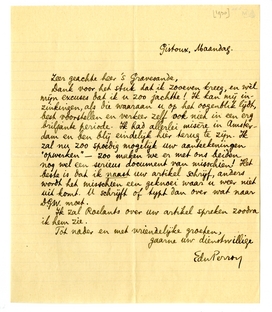 Gistoux, Maandag.
Zeer geachte heer 's Gravesande,
Dank voor het stuk dat ik zooeven kreeg, en wel
mijn excuses dat ik u zoo jachtte! Ik kan mij in-
zinkingen, als die waaraan u op het oogenblik lijdt,
best voorstellen en verkeer zelf ook niet in een erg
briljante periode. Ik had allerlei misère in Amster-
dam en ben blij eindelijk hier terug te zijn. Ik
zal nu zoo spoedig mogelijk uw aanteekeningen
"opwerken" — zoo maken we er met ons beiden
nog wel een serieus document van misschien! Het
beste is dat ik naast uw artikel schrijf, anders
wordt het misschien een geknoei waar u weer niet
uit komt. U schrijft of typt dan over wat naar
D.G.W. moet.
Ik zal Roelants over uw artikel spreken zoodra
ik hem zie.
Tot nader en met vriendelijke groeten,
gaarne uw dienstwillige
EduPerron